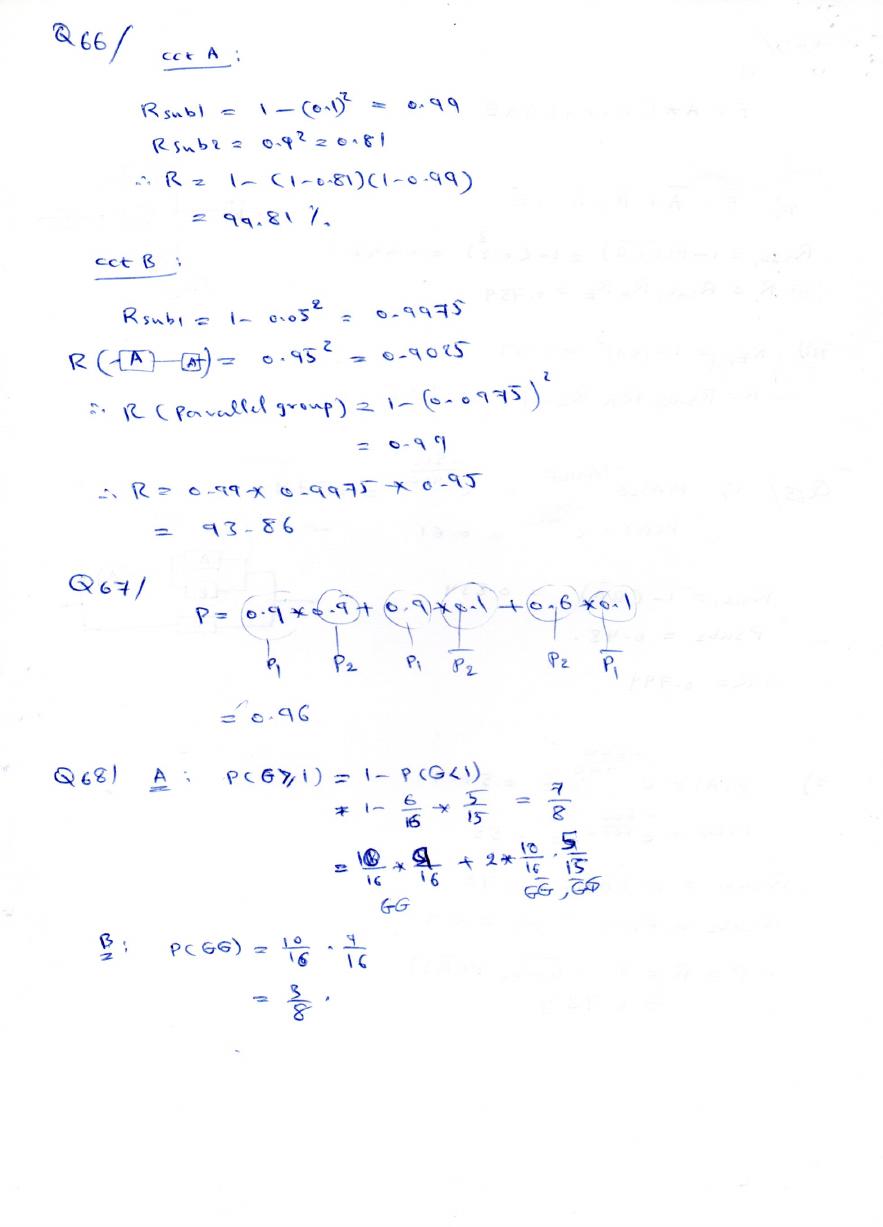 Q66/
cct A :
Rsub1 = 1 - (0.1)² = 0.99
Rsub2 = 0.9² = 0.81
∴ R = 1 - (1-0.81)(1-0.99)
= 99.81 %.
cct B :
Rsub1 = 1 - 0.05² = 0.9975
R (-[A]-[A]-) = 0.95² = 0.9025
∴ R (parallel group) = 1 - (0.0975)²
= 0.99
∴ R = 0.99 * 0.9975 * 0.95
= 93.86
Q67/
P = 0.9 * 0.9 + 0.9 * 0.1 + 0.6 * 0.1
P₁ P₂ P₁ P̅₂ P₂ P̅₁
= 0.96
Q68/ A : P(G≥1) = 1 - P(G<1)
= 1 - 6/16 * 5/15 = 7/8
= 10/16 * 9/16 + 2 * 10/16 . 5/15
GG GG̅, G̅G
B : P(GG) = 10/16 . 9/16
= 3/8 .